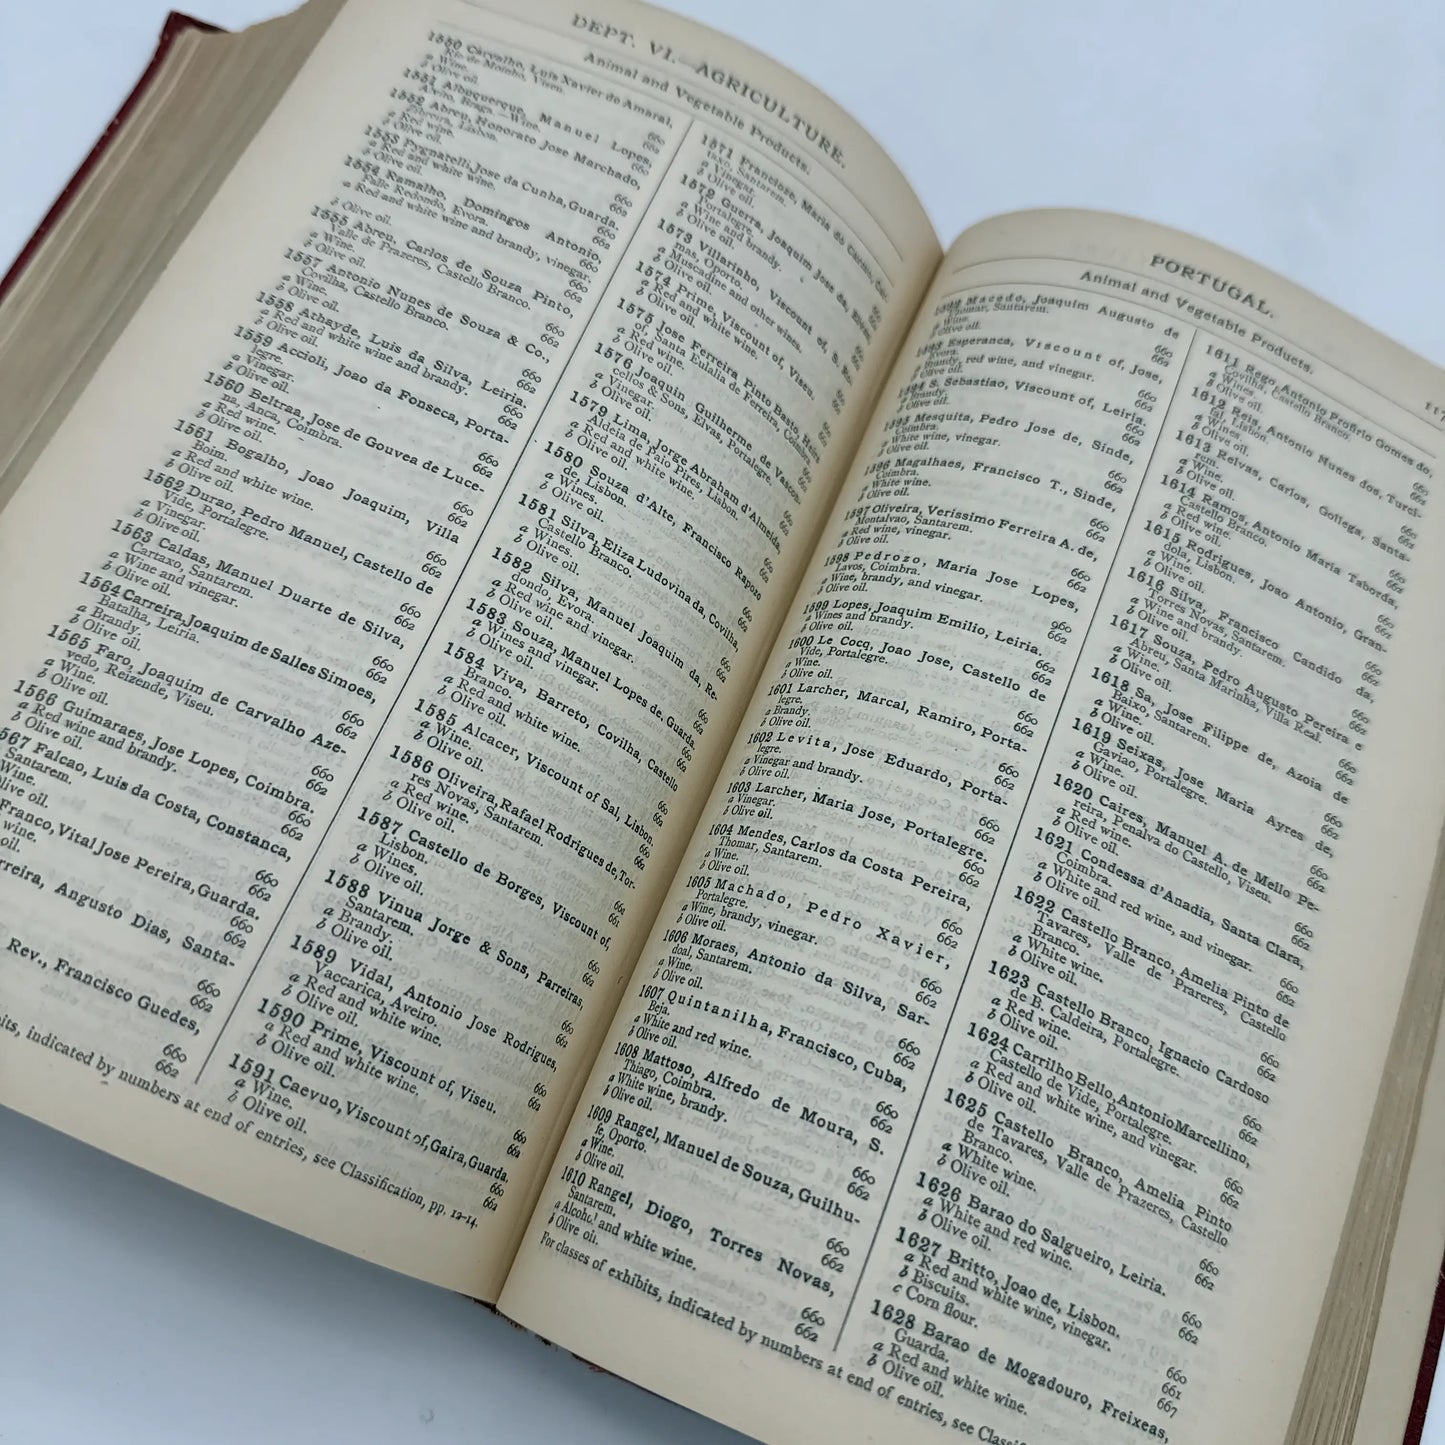 DEPT. VI.—AGRICULTURE.
Animal and Vegetable Products.
1550 Carvalho, Luis Xavier do Amaral,
Rio de Moinho, Visen.
a Wine. 660
b Olive oil. 660
1551 Albuquerque, Manuel Lopes,
Alviro, Braga.—Wine. 660
1552 Abreu, Honorato Jose Marchado,
Ribreira, Lisbon.
a Red wine.
b Olive oil.
1553 Pygnarelli, Jose da Cunha, Guarda.
a Red and white wine. 660
b Olive oil. 662
1554 Ramalho, Domingos Antonio,
Falle Redondo, Evora.
a Red and white wine and brandy, vinegar. 660
b Olive oil. 662
1555 Abreu, Carlos de Souza Pinto,
Valle de Prazeres, Castello Branco.
a Wine. 660
b Olive oil. 662
1557 Antonio Nunes de Souza & Co.,
Covilha, Castello Branco.
a Wine. 660
b Olive oil. 662
1558 Athayde, Luis da Silva, Leiria.
a Red and white wine and brandy. 660
b Olive oil. 662
1559 Accioli, Joao da Fonseca, Porta-
legre.
a Vinegar. 660
b Olive oil. 662
1560 Beltraa, Jose de Gouvea de Luce-
na, Anca, Coimbra.
a Red wine. 660
b Olive oil. 662
1561 Bogalho, Joao Joaquim, Villa
Boim.
a Red and white wine. 660
b Olive oil. 662
1562 Durao, Pedro Manuel, Castello de
Vide, Portalegre.
a Vinegar. 660
b Olive oil. 662
1563 Caldas, Manuel Duarte de Silva,
Cartaxo, Santarem.
a Wine and vinegar. 660
b Olive oil. 662
1564 Carreira, Joaquim de Salles Simoes,
Batalha, Leiria.
a Brandy. 660
b Olive oil. 662
1565 Faro, Joaquim de Carvalho Aze-
vedo, Reizende, Viseu.
a Wine. 660
b Olive oil. 662
1566 Guimaraes, Jose Lopes, Coimbra.
a Red wine and brandy. 660
b Olive oil. 662
567 Falcao, Luis da Costa, Constanca,
Santarem.
Wine. 660
live oil. 662
Franco, Vital Jose Pereira, Guarda.
wine. 660
oil. 662
rreira, Angusto Dias, Santa-
660
662
Rev., Francisco Guedes,
660
662
bits, indicated by numbers at end of entries, see Classification, pp. 12-14.
1571 Francisco, Maria do Carmin, Car-
taxo, Santarem.
a Vinegar.
b Olive oil.
1572 Guerra, Joaquim Jose da, Elvas,
Portalegre.
a Wine and brandy.
b Olive oil.
1573 Villarinho, Viscount ed, S. Ro-
mas, Oporto.
a Muscadine and other wines.
b Olive oil.
1574 Prime, Viscount of, Viseu.
a Red and white wine.
b Olive oil.
1575 Jose Ferreira Pinto Basto, Heirs
of, Santa Eulalia de Ferreira, Coimbra.
a Red wine.
b Olive oil.
1576 Joaquim Guilherme de Vascon-
cellos & Sons, Elvas, Portalegre.
a Vinegar.
b Olive oil.
1579 Lima, Jorge Abraham d'Almeida,
Aldeia de Paio Pires, Lisbon.
a Red and white wine.
b Olive oil.
1580 Souza d'Alte, Francisco Raposo
de, Lisbon.
a Wines.
b Olive oil.
1581 Silva, Eliza Ludovina da, Covilha,
Castello Branco.
a Wines.
b Olive oil.
1582 Silva, Manuel Joaquim da, Re-
dondo, Evora.
a Red wine and vinegar.
b Olive oil.
1583 Souza, Manuel Lopes de, Guarda.
a Wines and vinegar. 660
b Olive oil. 662
1584 Viva, Barreto, Covilha, Castello
Branco.
a Red and white wine. 660
b Olive oil. 662
1585 Alcacer, Viscount of Sal, Lisbon.
a Wine. 660
b Olive oil. 662
1586 Oliveira, Rafael Rodrigues de, Tor-
res Novas, Santarem.
a Red wine. 660
b Olive oil. 662
1587 Castello de Borges, Viscount of,
Lisbon.
a Wines. 660
b Olive oil. 662
1588 Vinua Jorge & Sons, Parreiras,
Santarem.
a Brandy. 660
b Olive oil. 662
1589 Vidal, Antonio Jose Rodrigues,
Vaccarica, Aveiro.
a Red and white wine. 660
b Olive oil. 662
1590 Prime, Viscount of, Viseu.
a Red and white wine. 660
b Olive oil. 662
1591 Caevuo, Viscount of, Gaira, Guarda.
a Wine. 660
b Olive oil. 662
PORTUGAL.
Animal and Vegetable Products.
1592 Macedo, Joaquim Augusto de
Thomar, Santarem.
a Wine. 660
b Olive oil. 662
1593 Esperanca, Viscount of, Jose,
Evora.
a Brandy, red wine, and vinegar. 660
b Olive oil. 662
1594 S. Sebastiao, Viscount of, Leiria.
a Brandy. 660
b Olive oil. 662
1595 Mesquita, Pedro Jose de, Sinde,
Coimbra.
a White wine, vinegar. 660
b Olive oil. 662
1596 Magalhaes, Francisco T., Sinde,
Coimbra.
a White wine. 660
b Olive oil. 662
1597 Oliveira, Verissimo Ferreira A. de,
Montalvao, Santarem.
a Red wine, vinegar. 660
b Olive oil. 662
1598 Pedrozo, Maria Jose Lopes,
Lavos, Coimbra.
a Wine, brandy, and vinegar. 960
b Olive oil. 662
1599 Lopes, Joaquim Emilio, Leiria.
a Wines and brandy. 660
b Olive oil. 662
1600 Le Cocq, Joao Jose, Castello de
Vide, Portalegre.
a Wine. 660
b Olive oil. 662
1601 Larcher, Marcal, Ramiro, Porta-
legre.
a Brandy. 660
b Olive oil. 662
1602 Levita, Jose Eduardo, Porta-
legre.
a Vinegar and brandy. 660
b Olive oil. 662
1603 Larcher, Maria Jose, Portalegre.
a Vinegar. 660
b Olive oil. 662
1604 Mendes, Carlos da Costa Pereira,
Thomar, Santarem.
a Wine. 660
b Olive oil. 662
1605 Machado, Pedro Xavier,
Portalegre.
a Wine, brandy, vinegar. 660
b Olive oil. 662
1606 Moraes, Antonio da Silva, Sar-
doal, Santarem.
a Wine. 660
b Olive oil. 662
1607 Quintanilha, Francisco, Cuba,
Beja.
a White and red wine. 660
b Olive oil. 662
1608 Mattoso, Alfredo de Moura, S.
Thiago, Coimbra.
a White wine, brandy. 660
b Olive oil. 662
1609 Rangel, Manuel de Souza, Guilhu-
fe, Oporto.
a Wine. 660
b Olive oil. 662
1610 Rangel, Diogo, Torres Novas,
Santarem.
a Alcohol and white wine. 660
b Olive oil. 662
For classes of exhibits, indicated by numbers at end of entries, see Classi
1611 Rego, Antonio Profirio Gomes do,
Covilha, Castello Branco.
a Wines.
b Olive oil.
1612 Reis, Antonio Nunes dos, Turci-
fal, Lisbon.
a Wines.
b Olive oil.
1613 Relvas, Carlos, Gollega, Santa-
rem.
a Wine.
b Olive oil.
1614 Ramos, Antonio Maria Taborda,
Castello Branco.
a Red wine. 660
b Olive oil. 662
1615 Rodrigues, Joao Antonio, Gran-
dola, Lisbon.
a Wine. 660
b Olive oil. 662
1616 Silva, Francisco Candido da,
Torres Novas, Santarem.
a Wine and brandy. 660
b Olive oil. 662
1617 Souza, Pedro Augusto Pereira e
Abreu, Santa Marinha, Villa Real.
a Wine. 660
b Olive oil. 662
1618 Sa, Jose Filippe de, Azoia de
Baixo, Santarem.
a Wine. 660
b Olive oil. 662
1619 Seixas, Jose Maria Ayres de,
Gaviao, Portalegre.
a Wine. 660
b Olive oil. 662
1620 Caires, Manuel A. de Mello Pe-
reira, Penalva do Castello, Viseu.
a Red wine. 660
b Olive oil. 662
1621 Condessa d'Anadia, Santa Clara,
Coimbra.
a White and red wine, and vinegar. 660
b Olive oil. 662
1622 Castello Branco, Amelia Pinto de
Tavares, Valle de Prareres, Castello
Branco.
a White wine. 660
b Olive oil. 662
1623 Castello Branco, Ignacio Cardoso
de B. Caldeira, Portalegre.
a Red wine. 660
b Olive oil. 662
1624 Carrilho Bello, Antonio Marcellino,
Castello de Vide, Portalegre.
a Red and white wine, and vinegar. 660
b Olive oil. 662
1625 Castello Branco, Amelia Pinto
de Tavares, Valle de Prazeres, Castello
Branco.
a White wine. 660
b Olive oil. 662
1626 Barao do Salgueiro, Leiria.
a White and red wine. 660
b Olive oil. 662
1627 Britto, Joao de, Lisbon.
a Red and white wine, vinegar. 660
b Biscuits. 661
c Corn flour. 667
1628 Barao de Mogadouro, Freixeas,
Guarda.
a Red and white wine.
b Olive oil.